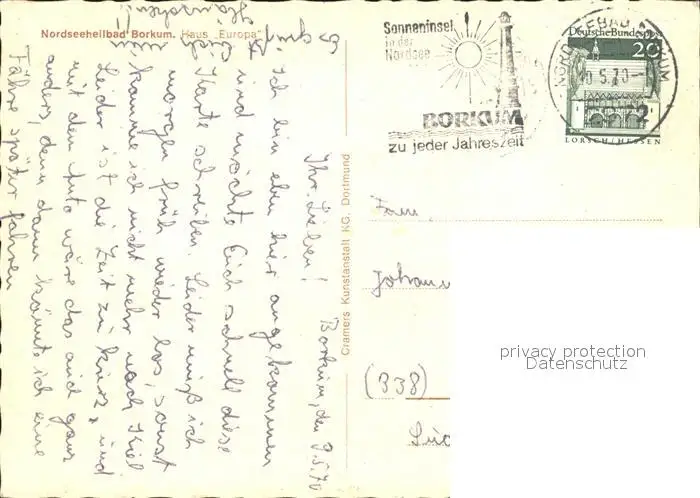 Nordseeheilbad Borkum. Haus „Europa"
Borkum, den 9.5.70
Ihr Lieben!
Ich bin eben hier angekommen
und möchte Euch schnell diese
Karte schreiben. Leider muß ich
morgen früh wieder los, sonst
könnte ich nicht mehr nach Kiel
Leider ist die Zeit zu kurz, und
mit dem Auto wäre das auch ganz
anders, denn dann könnte ich eine
Fähre später fahren
Cramers Kunstanstalt KG. Dortmund
Sonneninsel
in der
Nordsee
BORKUM
zu jeder Jahreszeit
Deutsche Bundespost
20
LORSCH/HESSEN
Fam.
Johann
(338)
privacy protection
Datenschutz